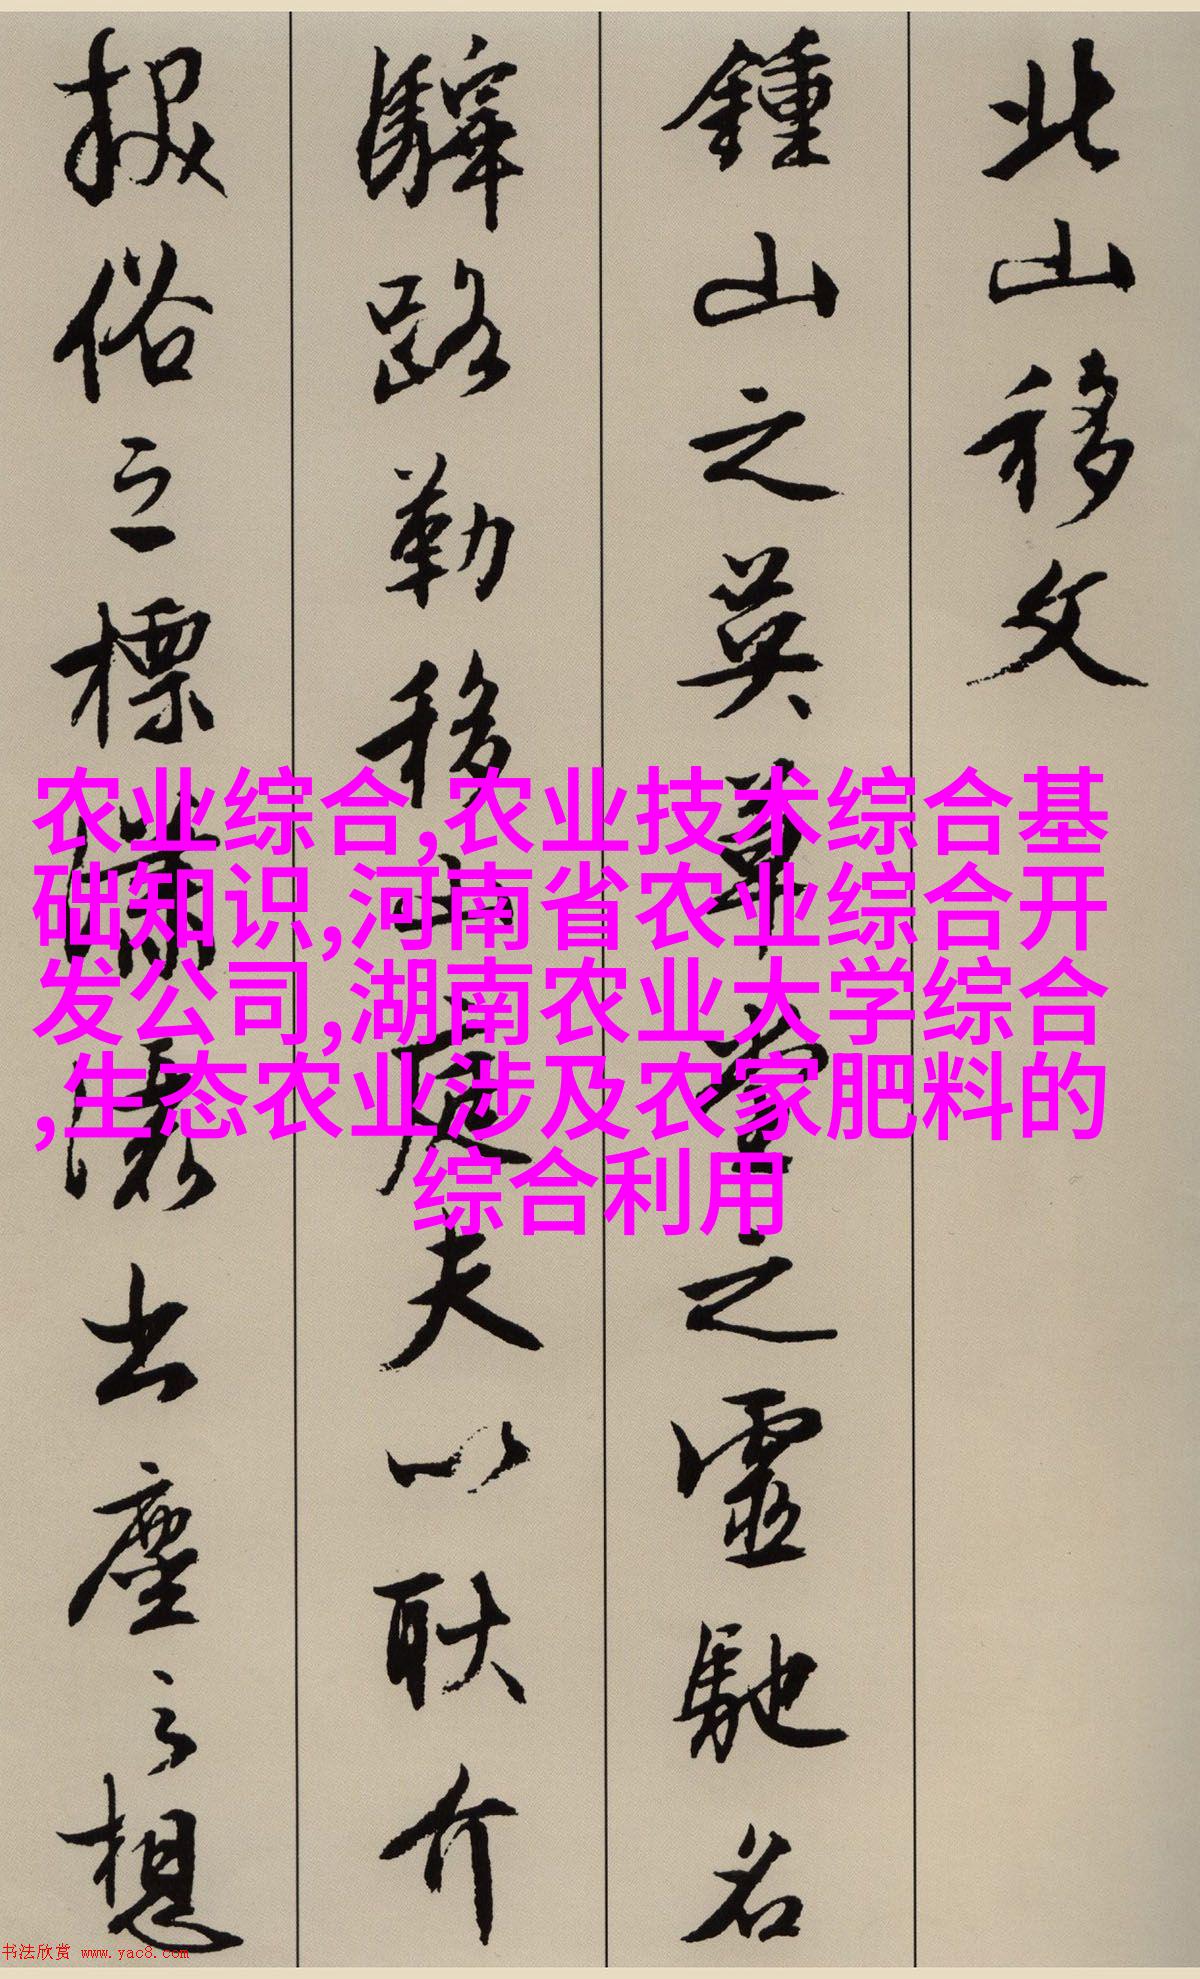 北山移文
鍾山之英草堂之靈馳名
驛路勒移山庭夫以耿介
拔俗之標瀟灑出塵之想
农业综合,农业技术综合基
础知识,河南省农业综合开
发公司,湖南农业大学综合
,生态农业涉及农家肥料的
综合利用
书法欣赏 www.yac8.com